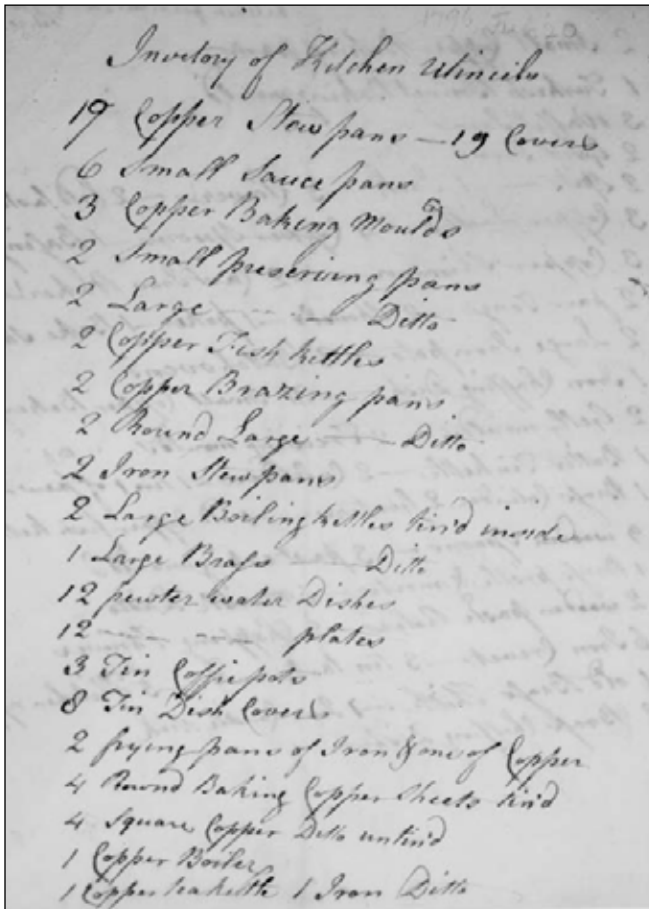 1796
Invetory of Kitchen Utincils
19 Copper Stewpans — 19 Covers
6 Small Saucepans
3 Copper Baking Moulds
2 Small preserving pans
2 Large — Ditto
2 Copper Fish kettles
2 Copper Brazing pans
2 Round Large — Ditto
2 Iron Stewpans
2 Large Boiling kettles tin'd inside
1 Large Brass — Ditto
12 pewter water Dishes
12 — — — plates
3 Tin Coffiepots
8 Tin Dish Covers
2 frying pans of Iron & one of Copper
4 Round Baking Copper Sheets tin'd
4 Square Copper Ditto untin'd
1 Copper Boiler
1 Copper teakettle 1 Iron Ditto